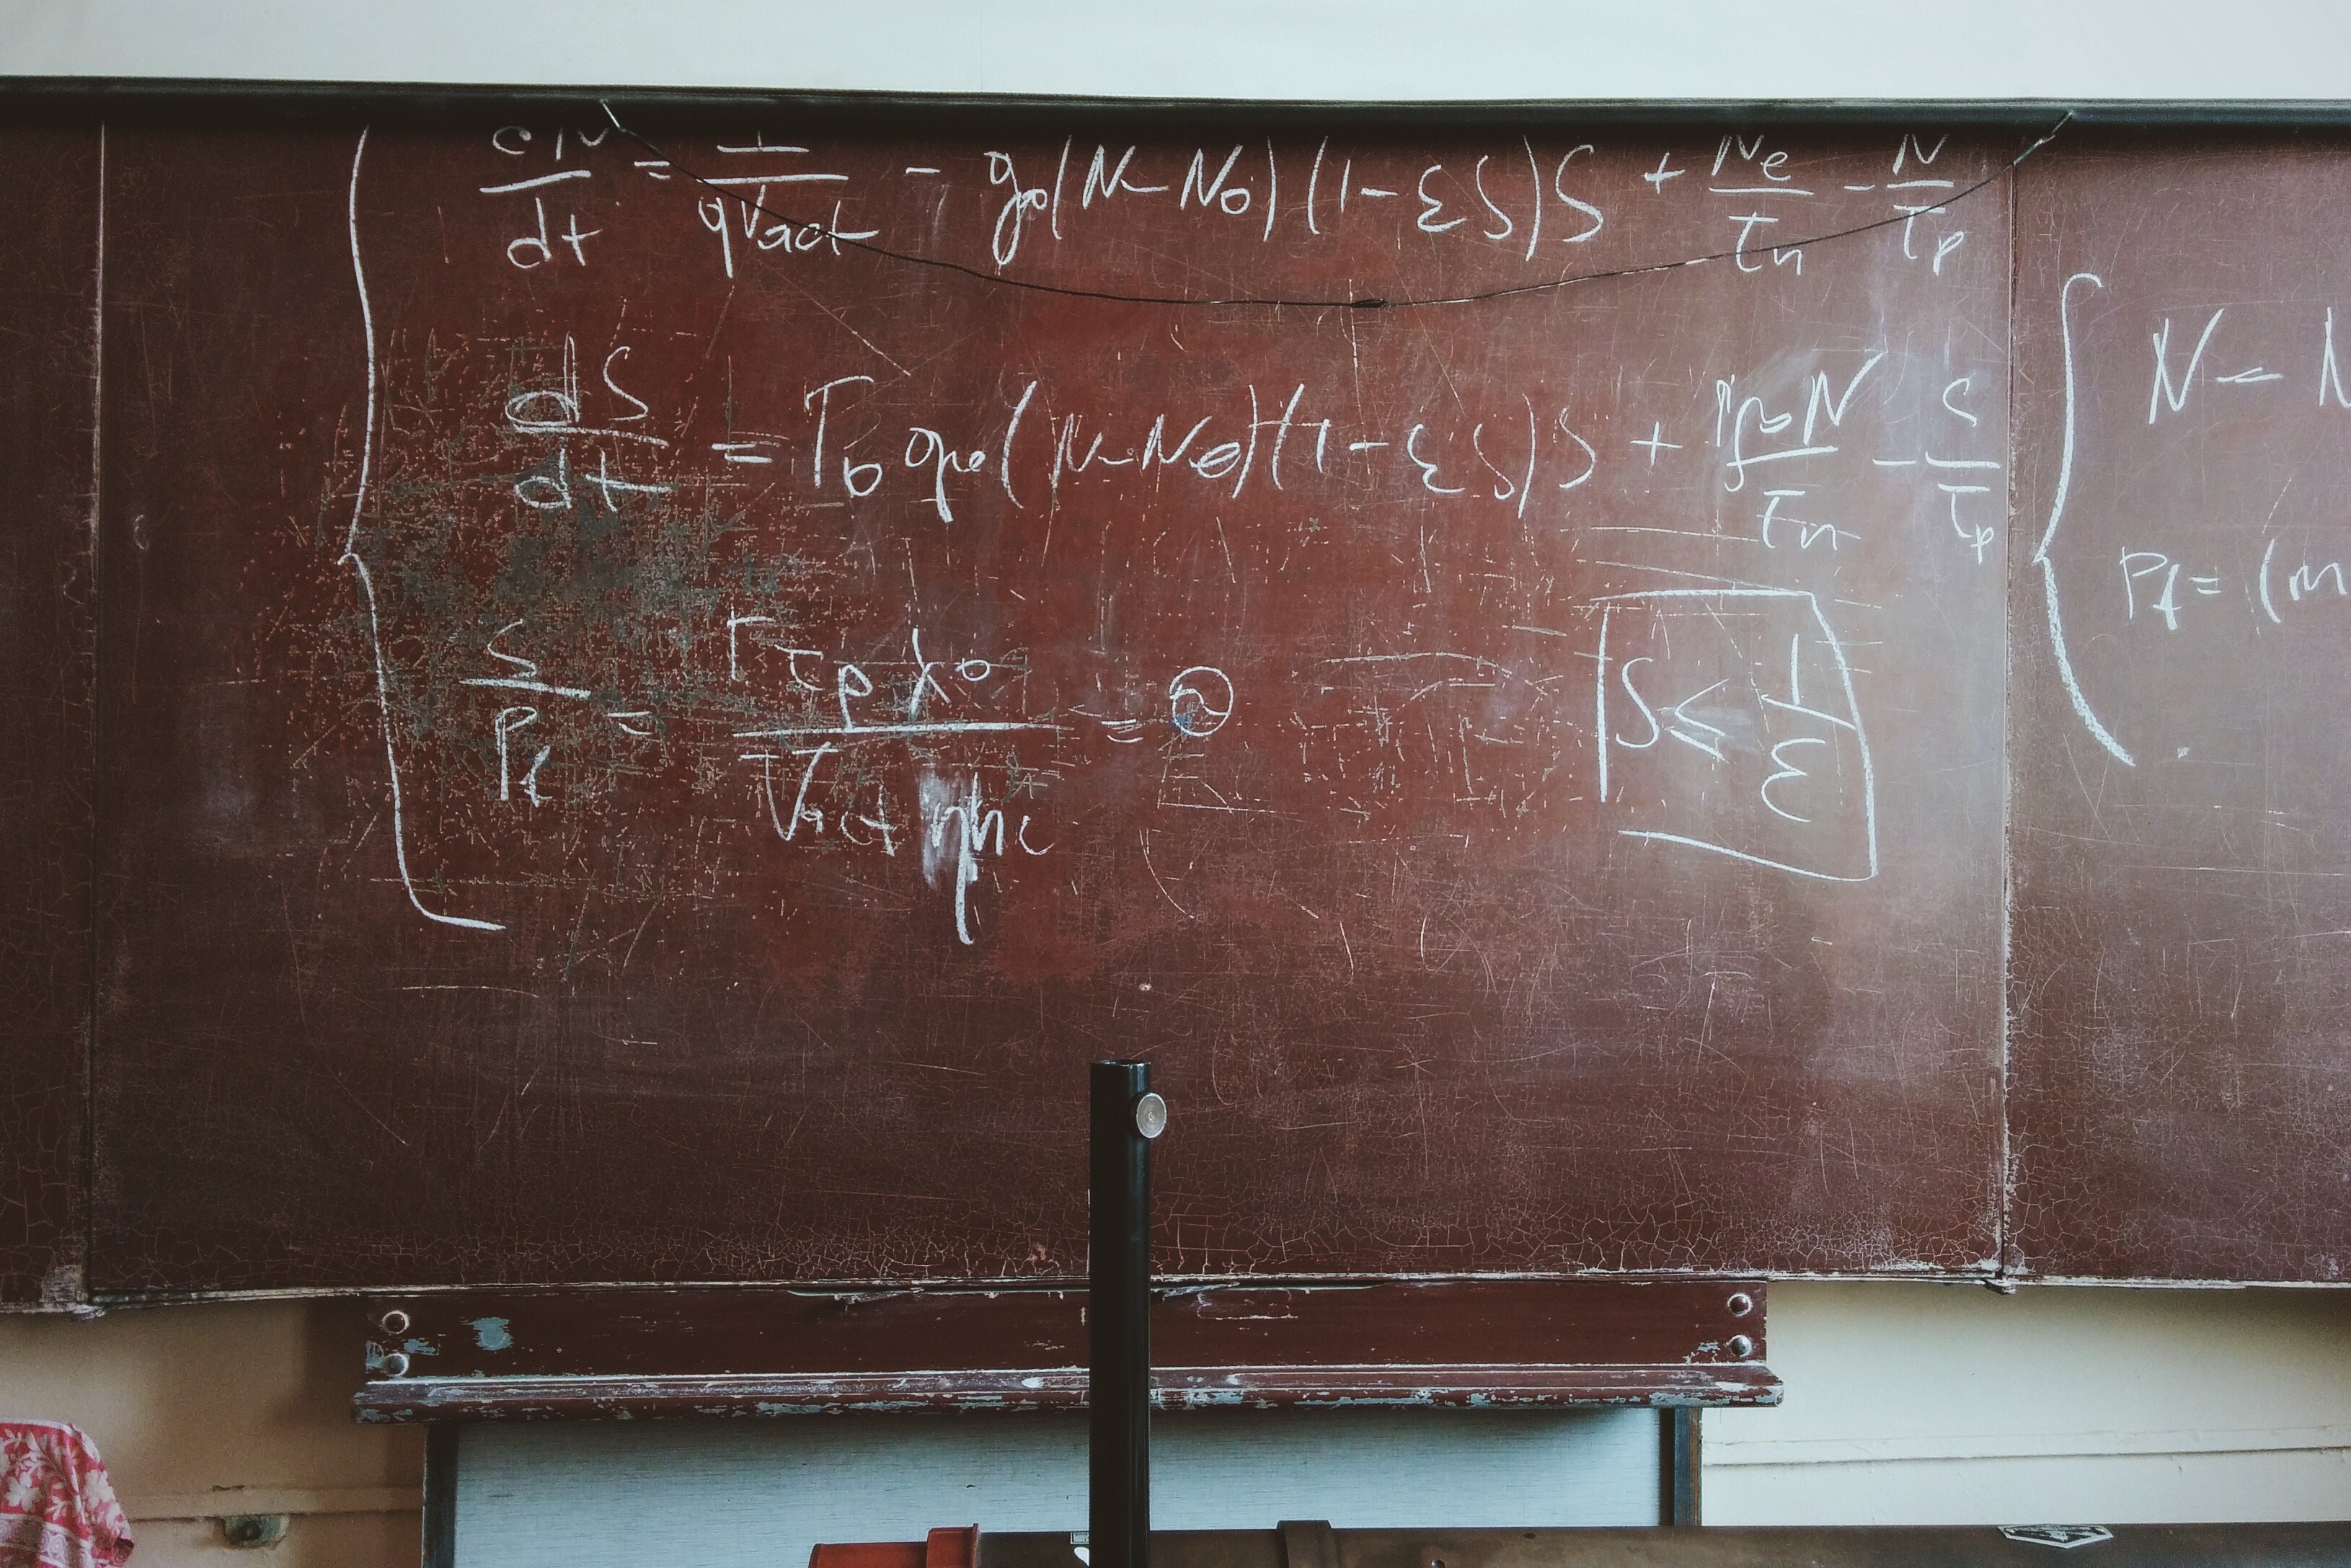 dN/dt = I/(qVact) - g₀(N-N₀)(1-εS)S + Ne/τn - N/τp
dS/dt = Γ₀g₀(N-N₀)(1-εS)S + N/τn - S/τp
S/Pf = Γτpλ₀/(Vact ηhc) =
S ≤ 1/ε
N - N
Pf = (m